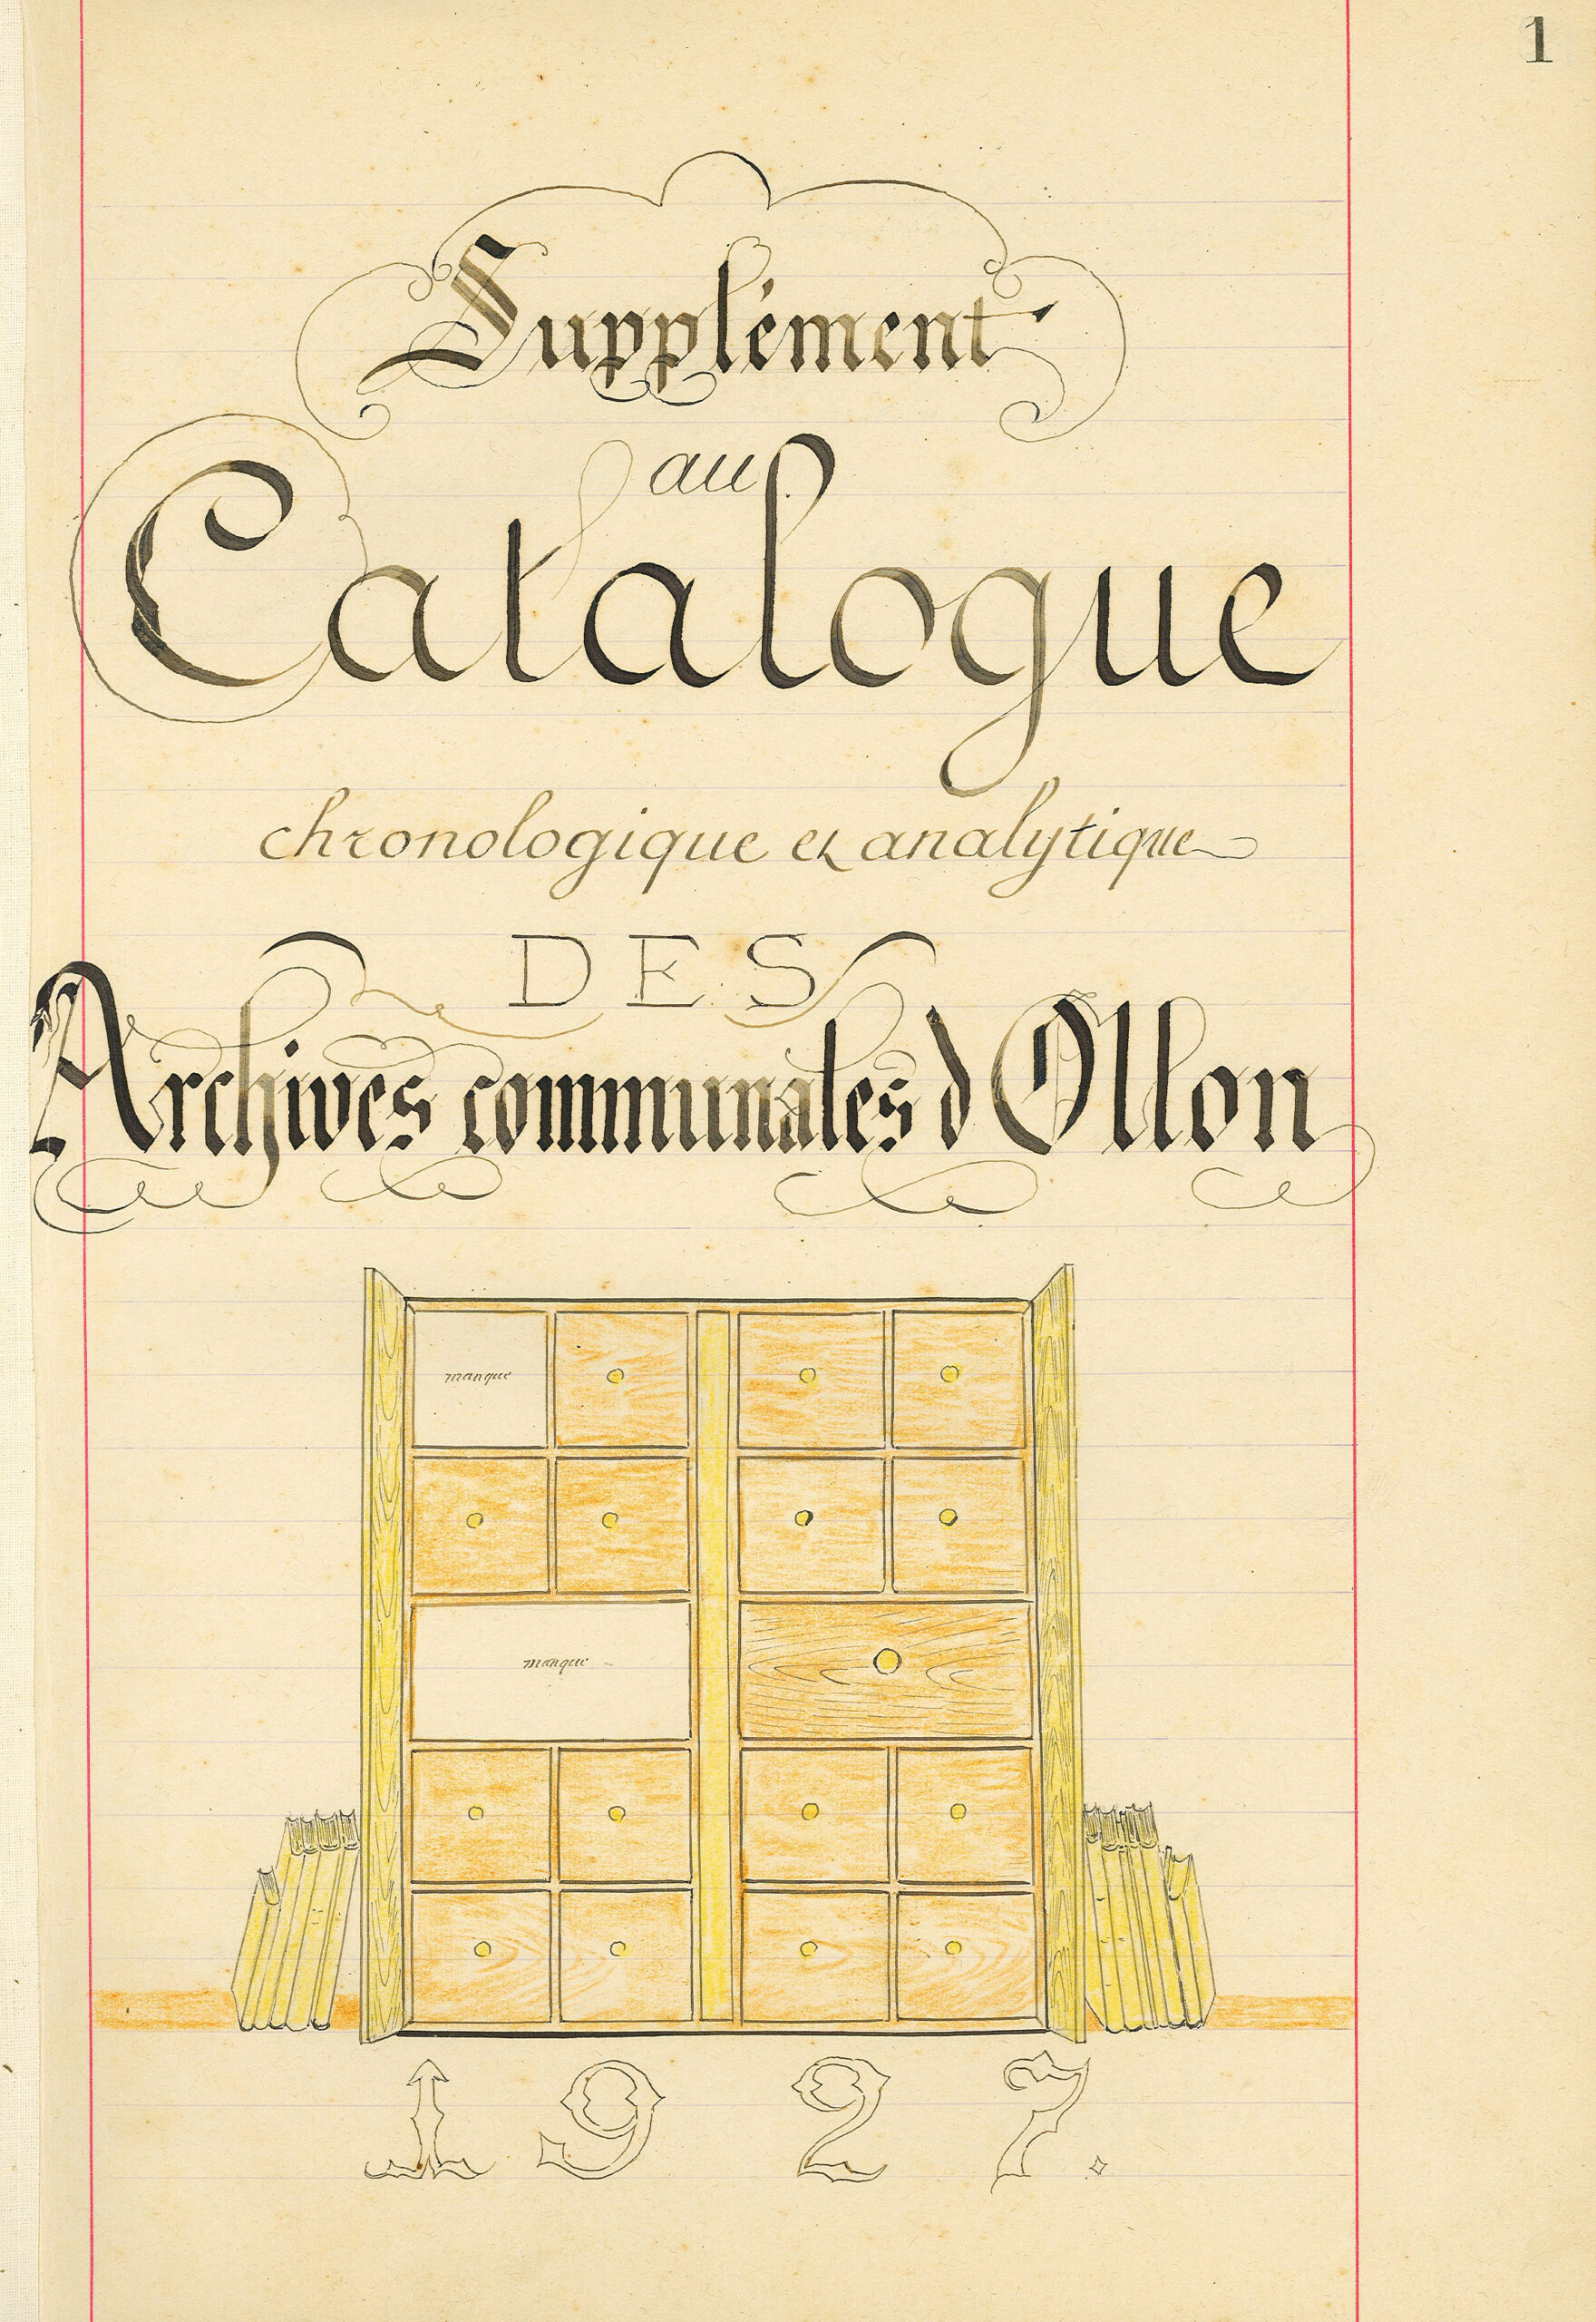 1
Supplément
au
Catalogue
chronologique et analytique
DES
Archives communales d'Ollon
manque
manque
1927.